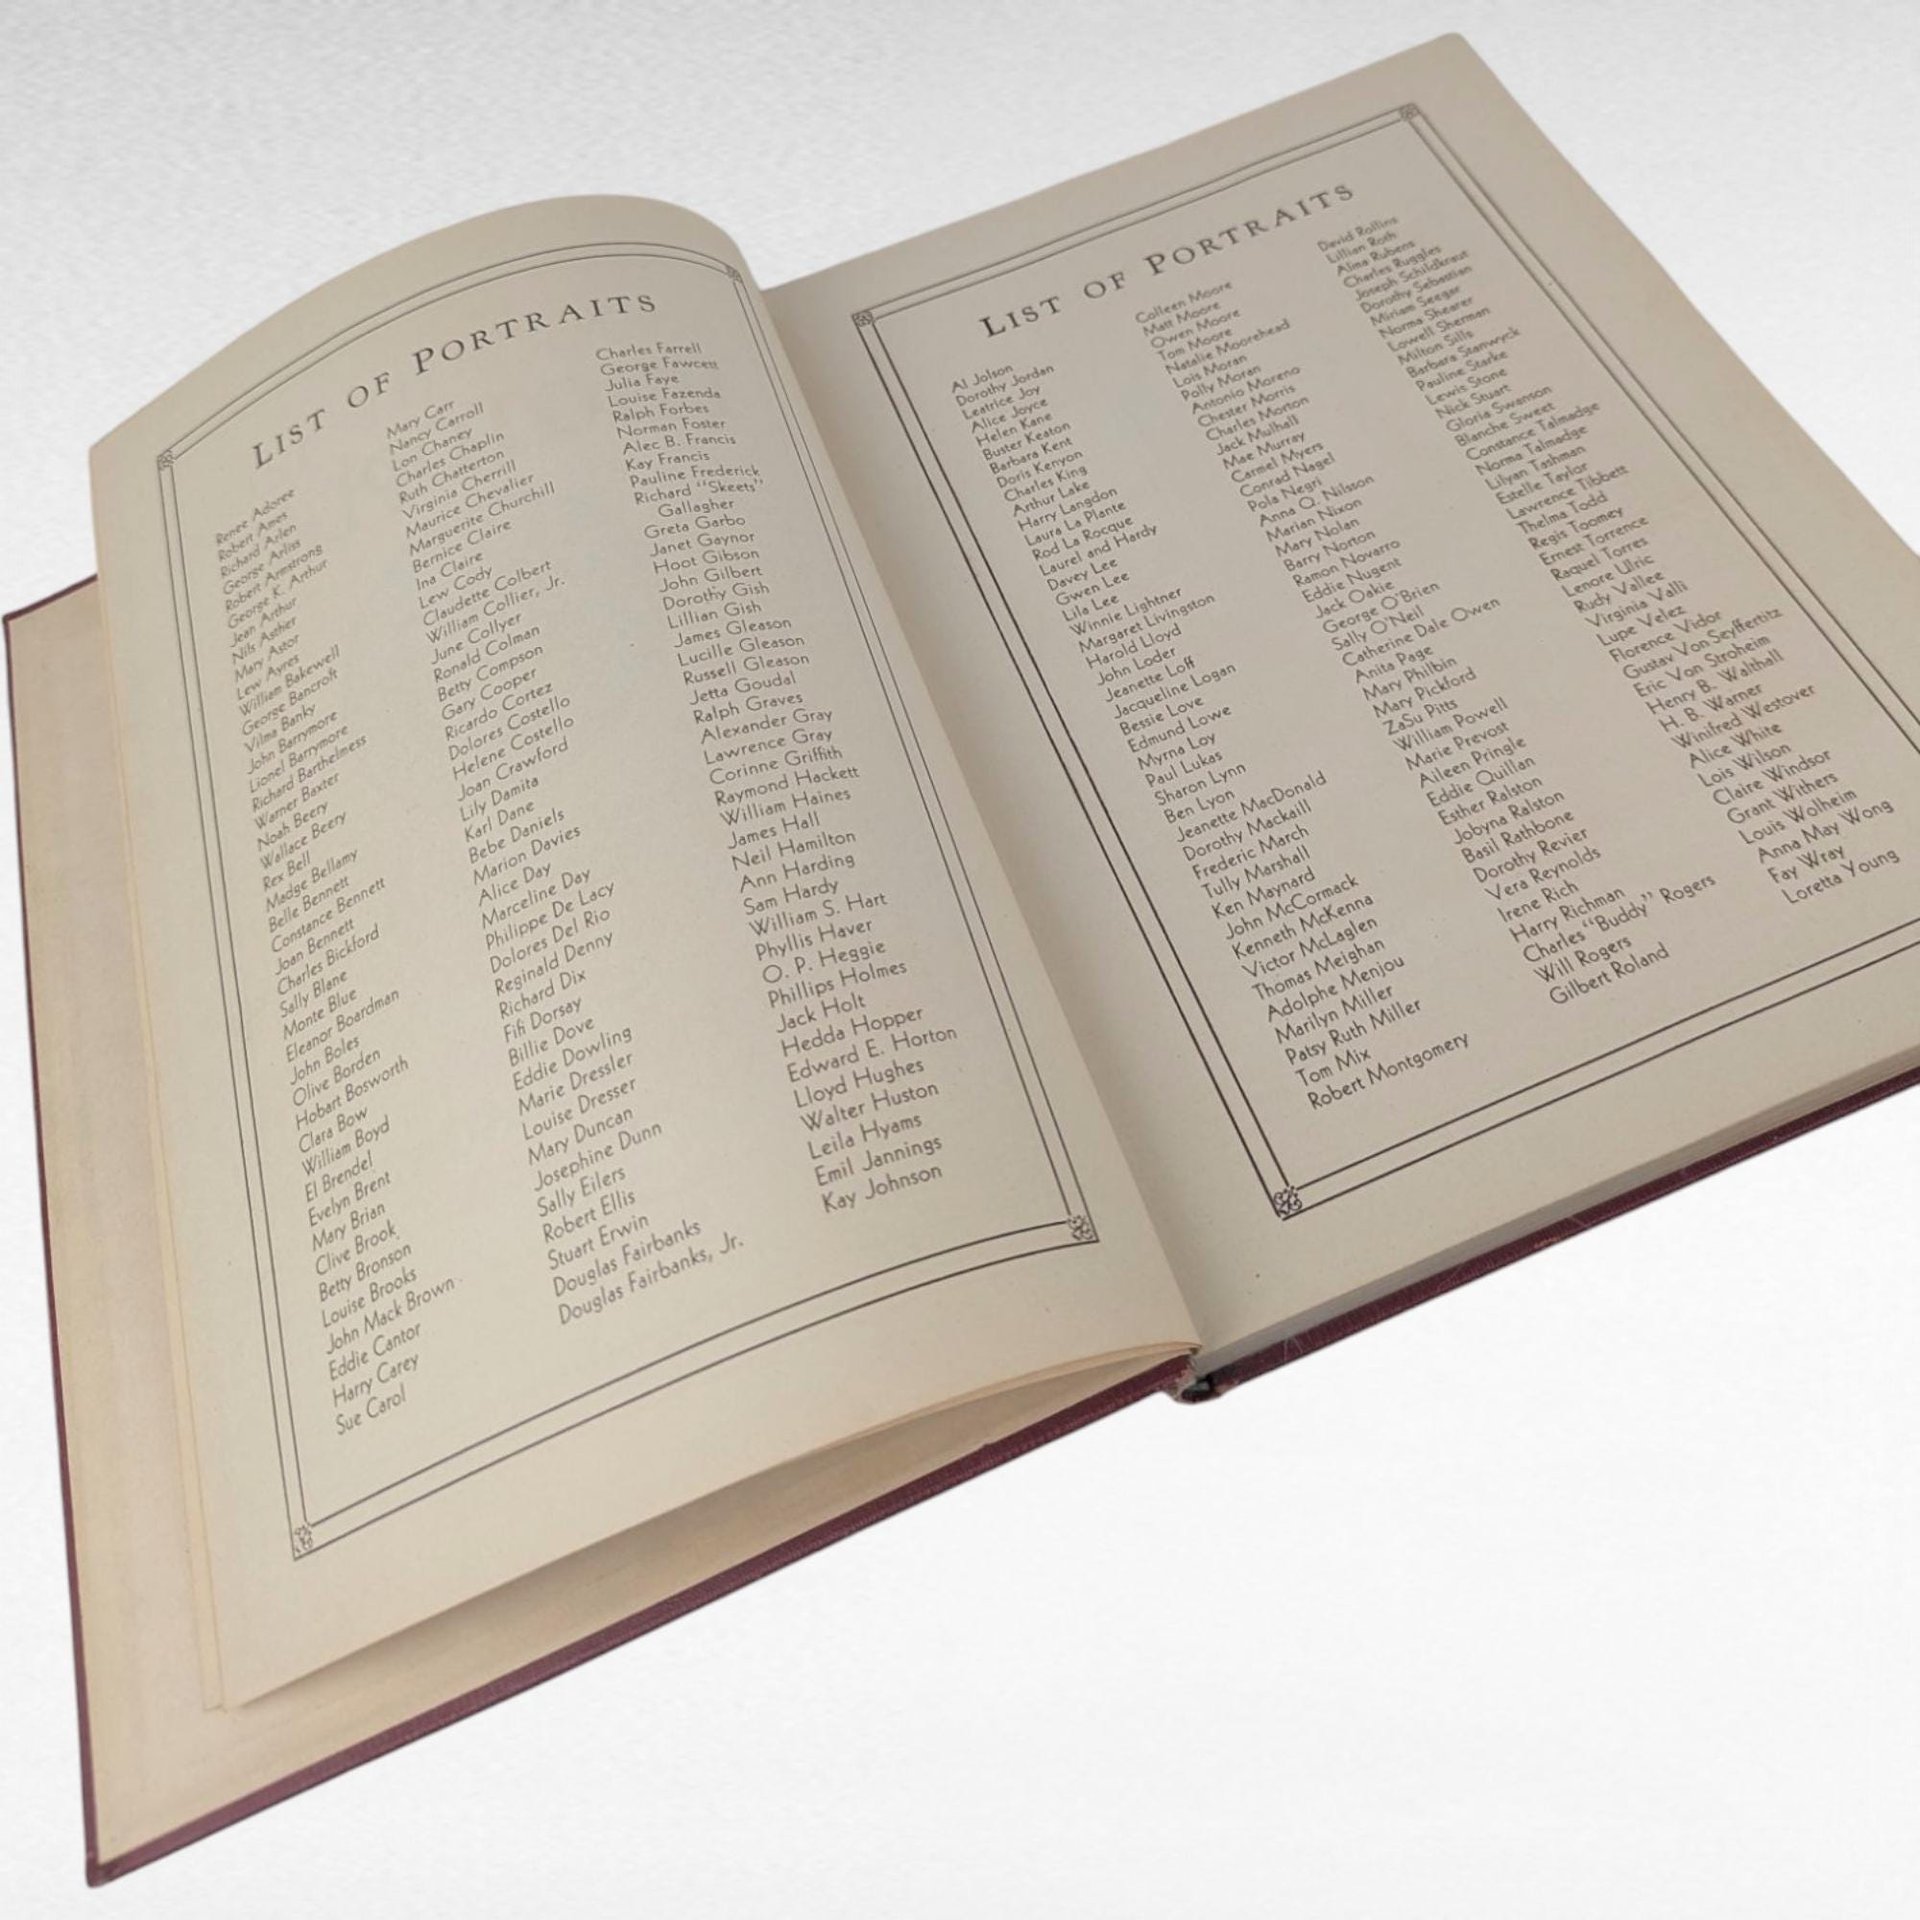 LIST OF PORTRAITS
Renee Adoree
Robert Ames
Richard Arlen
George Arliss
Robert Armstrong
George K. Arthur
Jean Arthur
Nils Asther
Mary Astor
Lew Ayres
William Bakewell
George Bancroft
Vilma Banky
John Barrymore
Lionel Barrymore
Richard Barthelmess
Warner Baxter
Noah Beery
Wallace Beery
Rex Bell
Madge Bellamy
Belle Bennett
Constance Bennett
Joan Bennett
Charles Bickford
Sally Blane
Monte Blue
Eleanor Boardman
John Boles
Olive Borden
Hobart Bosworth
Clara Bow
William Boyd
El Brendel
Evelyn Brent
Mary Brian
Clive Brook
Betty Bronson
Louise Brooks
John Mack Brown
Eddie Cantor
Harry Carey
Sue Carol
Mary Carr
Nancy Carroll
Lon Chaney
Charles Chaplin
Ruth Chatterton
Virginia Cherrill
Maurice Chevalier
Marguerite Churchill
Bernice Claire
Ina Claire
Lew Cody
Claudette Colbert
William Collier, Jr.
June Collyer
Ronald Colman
Betty Compson
Gary Cooper
Ricardo Cortez
Dolores Costello
Helene Costello
Joan Crawford
Lily Damita
Karl Dane
Bebe Daniels
Marion Davies
Alice Day
Marceline Day
Philippe De Lacy
Dolores Del Rio
Reginald Denny
Richard Dix
Fifi Dorsay
Billie Dove
Eddie Dowling
Marie Dressler
Louise Dresser
Mary Duncan
Josephine Dunn
Sally Eilers
Robert Ellis
Stuart Erwin
Douglas Fairbanks
Douglas Fairbanks, Jr.
Charles Farrell
George Fawcett
Julia Faye
Louise Fazenda
Ralph Forbes
Norman Foster
Alec B. Francis
Kay Francis
Pauline Frederick
Richard "Skeets"
Gallagher
Greta Garbo
Janet Gaynor
Hoot Gibson
John Gilbert
Dorothy Gish
Lillian Gish
James Gleason
Lucille Gleason
Russell Gleason
Jetta Goudal
Ralph Graves
Alexander Gray
Lawrence Gray
Corinne Griffith
Raymond Hackett
William Haines
James Hall
Neil Hamilton
Ann Harding
Sam Hardy
William S. Hart
Phyllis Haver
O. P. Heggie
Phillips Holmes
Jack Holt
Hedda Hopper
Edward E. Horton
Lloyd Hughes
Walter Huston
Leila Hyams
Emil Jannings
Kay Johnson
LIST OF PORTRAITS
Al Jolson
Dorothy Jordan
Leatrice Joy
Alice Joyce
Helen Kane
Buster Keaton
Barbara Kent
Doris Kenyon
Charles King
Arthur Lake
Harry Langdon
Laura La Plante
Rod La Rocque
Laurel and Hardy
Davey Lee
Gwen Lee
Lila Lee
Winnie Lightner
Margaret Livingston
Harold Lloyd
John Loder
Jeanette Loff
Jacqueline Logan
Bessie Love
Edmund Lowe
Myrna Loy
Paul Lukas
Sharon Lynn
Ben Lyon
Jeanette MacDonald
Dorothy Mackaill
Frederic March
Tully Marshall
Ken Maynard
John McCormack
Kenneth McKenna
Victor McLaglen
Thomas Meighan
Adolphe Menjou
Marilyn Miller
Patsy Ruth Miller
Tom Mix
Robert Montgomery
Colleen Moore
Matt Moore
Owen Moore
Tom Moore
Natalie Moorehead
Lois Moran
Polly Moran
Antonio Moreno
Chester Morris
Charles Morton
Jack Mulhall
Mae Murray
Carmel Myers
Conrad Nagel
Pola Negri
Anna Q. Nilsson
Marian Nixon
Mary Nolan
Barry Norton
Ramon Novarro
Eddie Nugent
Jack Oakie
George O'Brien
Sally O'Neil
Catherine Dale Owen
Anita Page
Mary Philbin
Mary Pickford
ZaSu Pitts
William Powell
Marie Prevost
Aileen Pringle
Eddie Quillan
Esther Ralston
Jobyna Ralston
Basil Rathbone
Dorothy Revier
Vera Reynolds
Irene Rich
Harry Richman
Charles "Buddy" Rogers
Will Rogers
Gilbert Roland
David Rollins
Lillian Roth
Alma Rubens
Charles Ruggles
Joseph Schildkraut
Dorothy Sebastian
Miriam Seegar
Norma Shearer
Lowell Sherman
Milton Sills
Barbara Stanwyck
Pauline Starke
Lewis Stone
Nick Stuart
Gloria Swanson
Blanche Sweet
Constance Talmadge
Norma Talmadge
Lilyan Tashman
Estelle Taylor
Lawrence Tibbett
Thelma Todd
Regis Toomey
Ernest Torrence
Raquel Torres
Lenore Ulric
Rudy Vallee
Virginia Valli
Lupe Velez
Florence Vidor
Gustav Von Seyffertitz
Eric Von Stroheim
Henry B. Walthall
H. B. Warner
Winifred Westover
Alice White
Lois Wilson
Claire Windsor
Grant Withers
Louis Wolheim
Anna May Wong
Fay Wray
Loretta Young